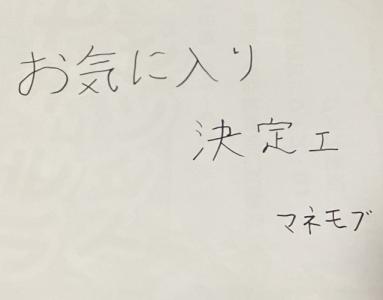 お気に入り
決定ェ
マネモブ